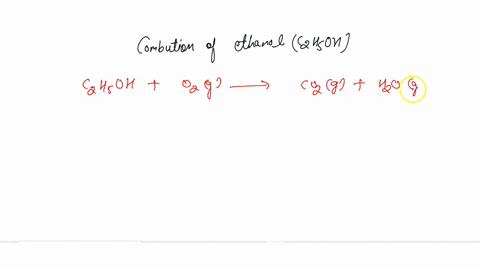 Combution of ethanol (C2H5OH)
C2H5OH + O2(g) ⟶ CO2(g) + H2O(g